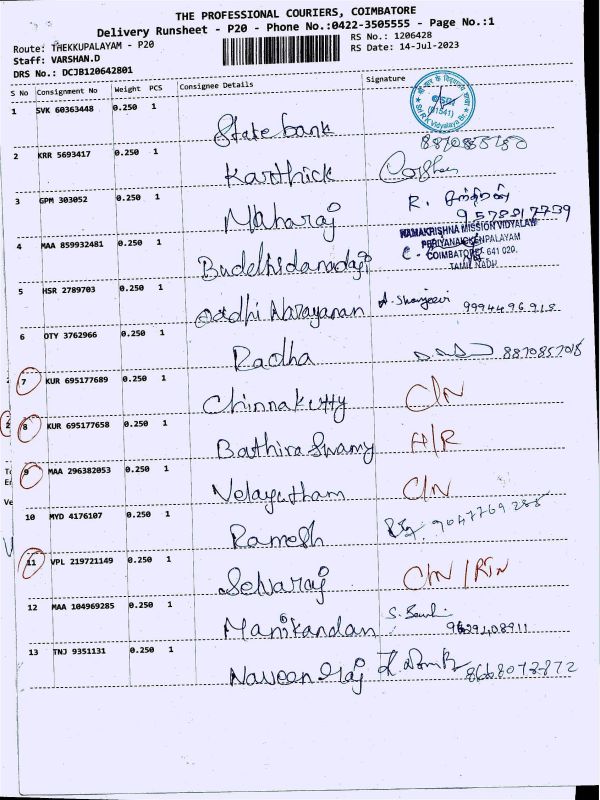 THE PROFESSIONAL COURIERS, COIMBATORE
Delivery Runsheet - P20 - Phone No.:0422-3505555 - Page No.:1
Route: THEKKUPALAYAM - P20
RS No.: 1206428
Staff: VARSHAN.D
RS Date: 14-Jul-2023
DRS No.: DCJB120642801
S No Consignment No Weight PCS Consignee Details Signature
1 SVK 60363448 0.250 1
State bank
2 KRR 5693417 0.250 1
Karthick
3 GPM 303052 0.250 1
R.
Maharaj
RAMAKRISHNA MISSION VIDYALAYA
4 MAA 859932481 0.250 1
PERIYANAICKENPALAYAM
COIMBATORE - 641 020.
TAMIL NADU
5 HSR 2789703 0.250 1
Aadhi Narayanan
6 OTY 3762966 0.250 1
Radha 8870857018
7 KUR 695177689 0.250 1
Chinnakutty C/N
8 KUR 695177658 0.250 1
Bathiraswamy A/R
9 MAA 296382053 0.250 1
Velayutham C/N
10 MYD 4176107 0.250 1
Ramesh
11 VPL 219721149 0.250 1
Selvaraj C/N / RTN
12 MAA 104969285 0.250 1
Manikandan
13 TNJ 9351131 0.250 1
Naveen Raj